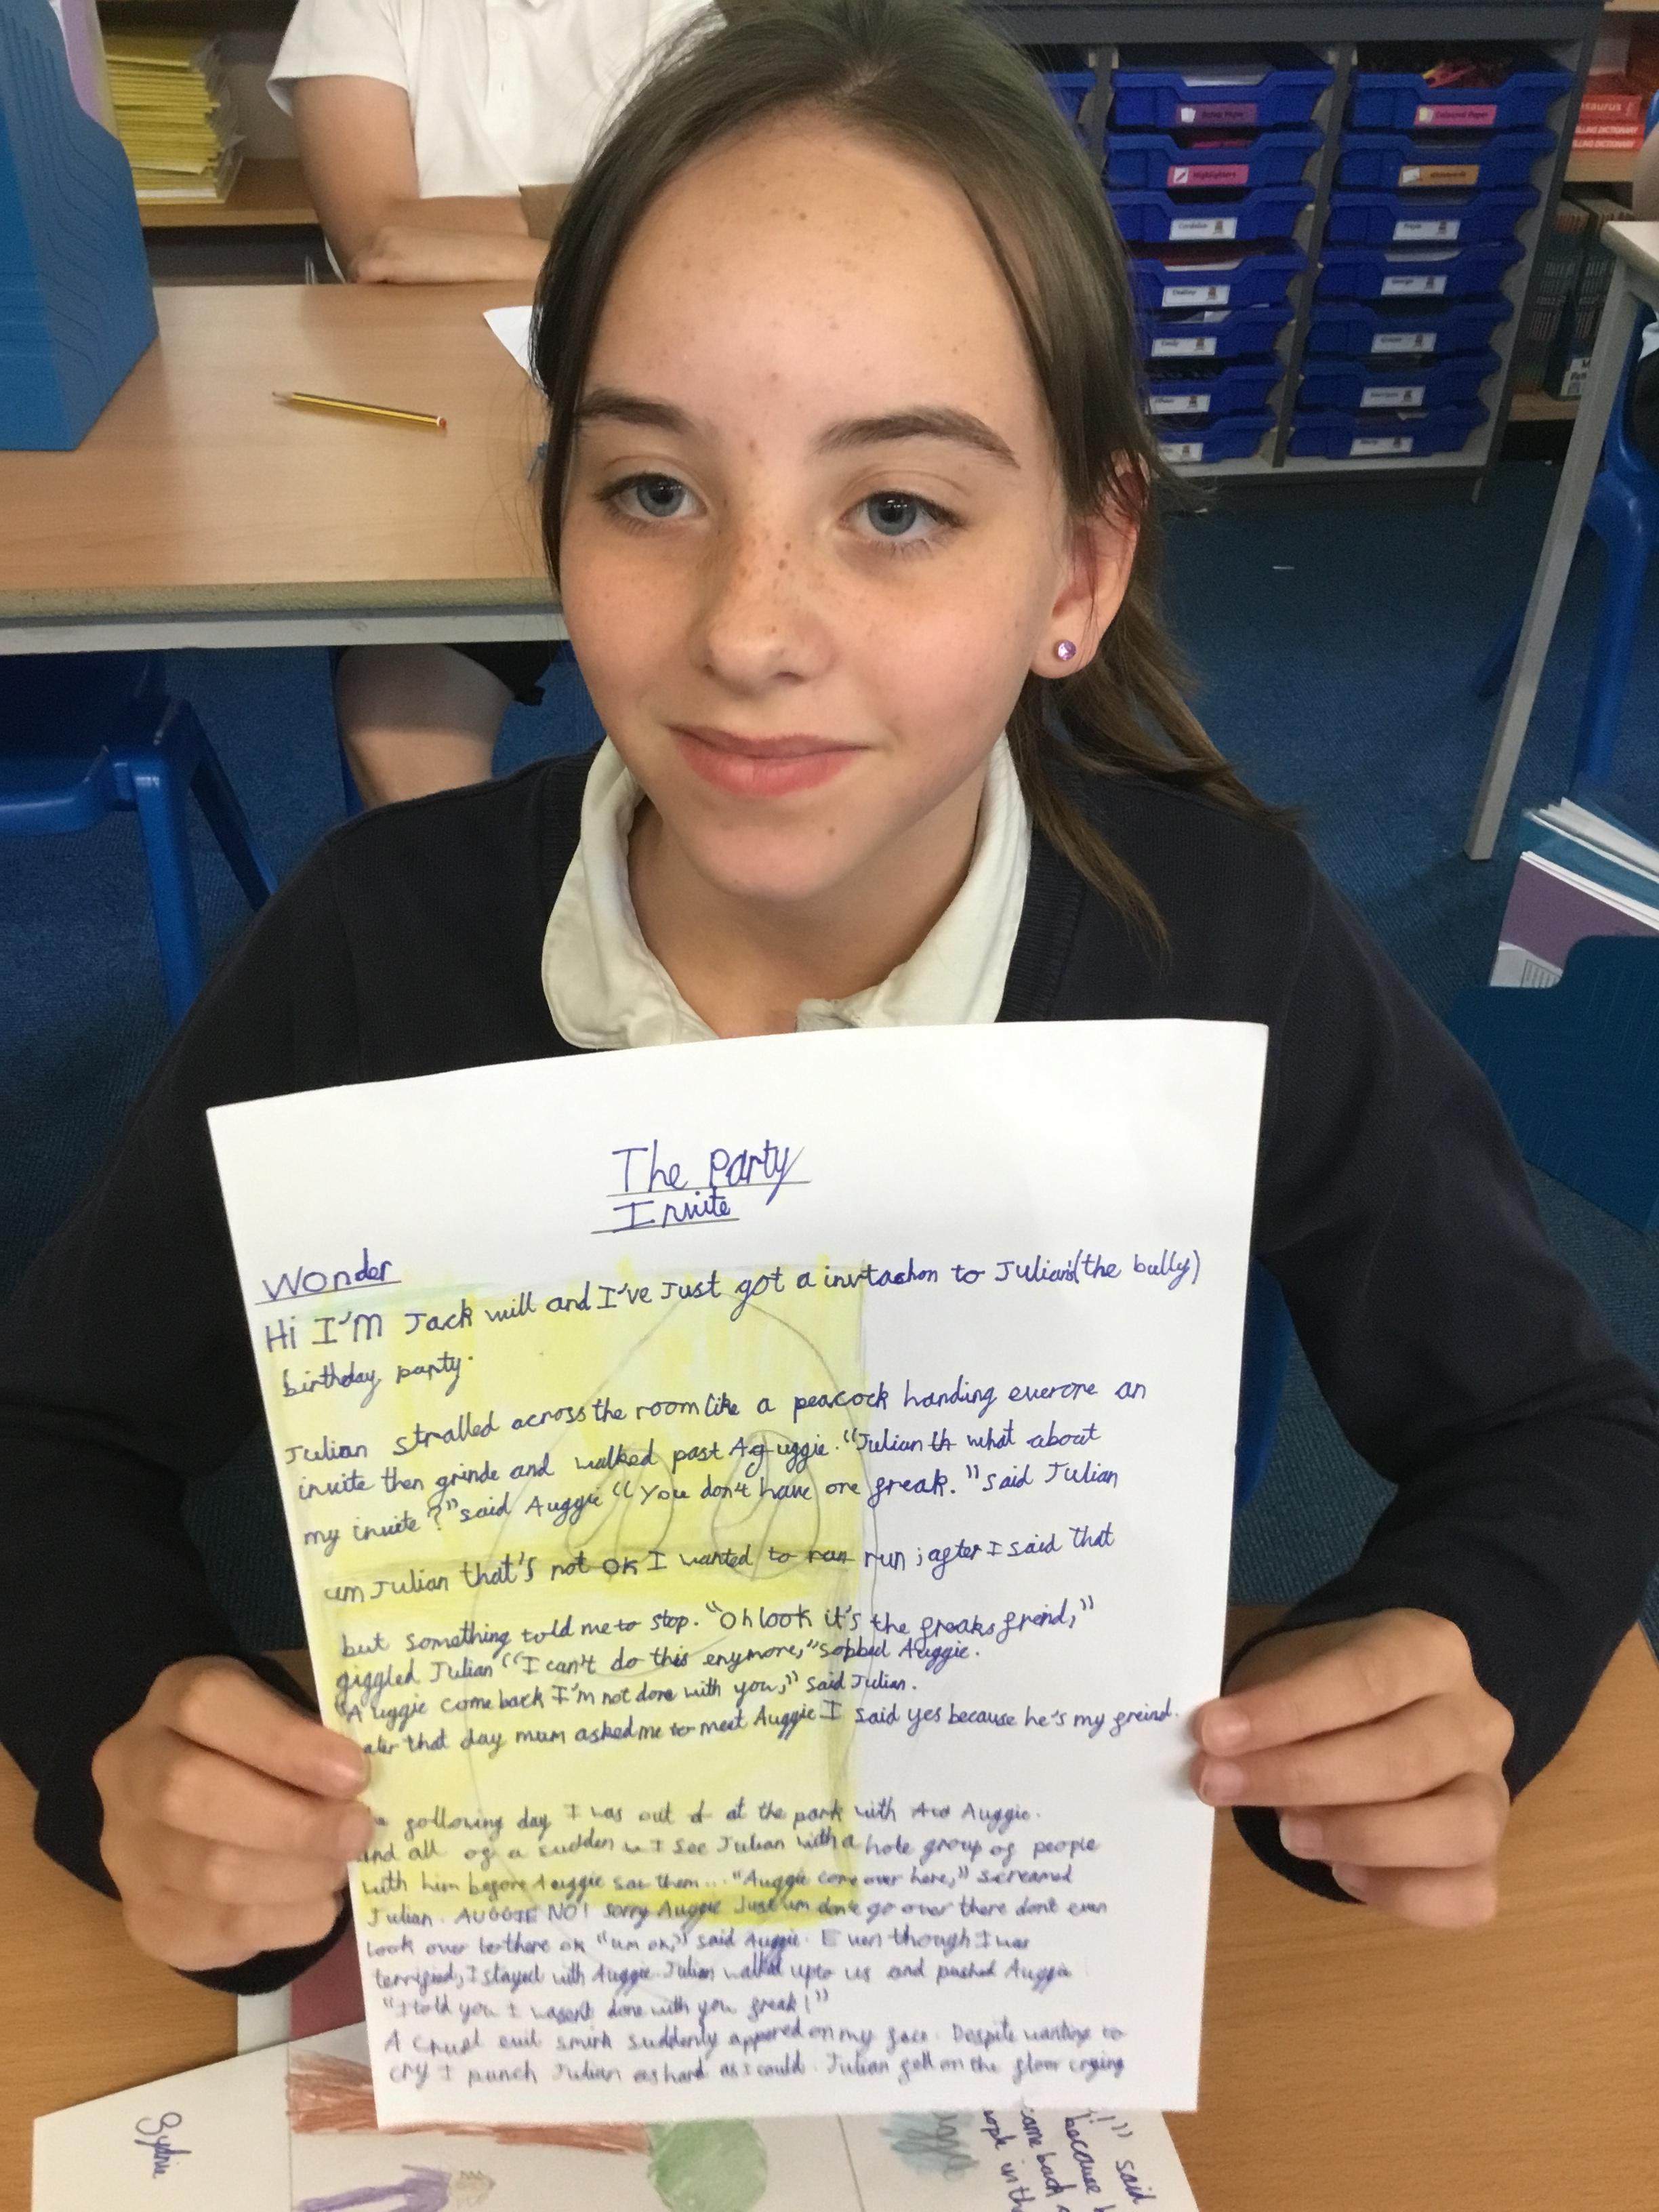 The Party
Invite
Wonder
Hi I'M Jack will and I've Just got a invtashon to Julian's (the bully)
birthday party.
Julian stralled across the room like a peacock handing everone an
invite then grinde and walked past Auggie. "Julian what about
my invite?" said Auggie "You don't have one freak." said Julian
um Julian that's not OK I wanted to run ; after I said that
but something told me to stop. "Oh look it's the freaks freind,"
giggled Julian "I can't do this enymore," sobbed Auggie.
"Auggie come back I'm not done with you," said Julian.
that day mum asked me to meet Auggie I said yes because he's my freind.
following day I was out at the park with Auggie.
and all of a sudden I see Julian with a hole group of people
with him before Auggie saw them... "Auggie come over here," screamed
Julian. AUGGIE NO! Sorry Auggie Just um don't go over there don't even
look over there ok "um ok," said Auggie. Even though I was
terrified, I stayed with Auggie. Julian walked upto us and pushed Auggie
"I told you I wasen't done with you freak!"
A cruel evil smirk suddenly appered on my face. Despite wanting to
cry I punch Julian as hard as I could. Julian fell on the floor crying
!" said
because
came back
in the
Highlighters
Coloured Paper
Whiteboards
DICTIONARY